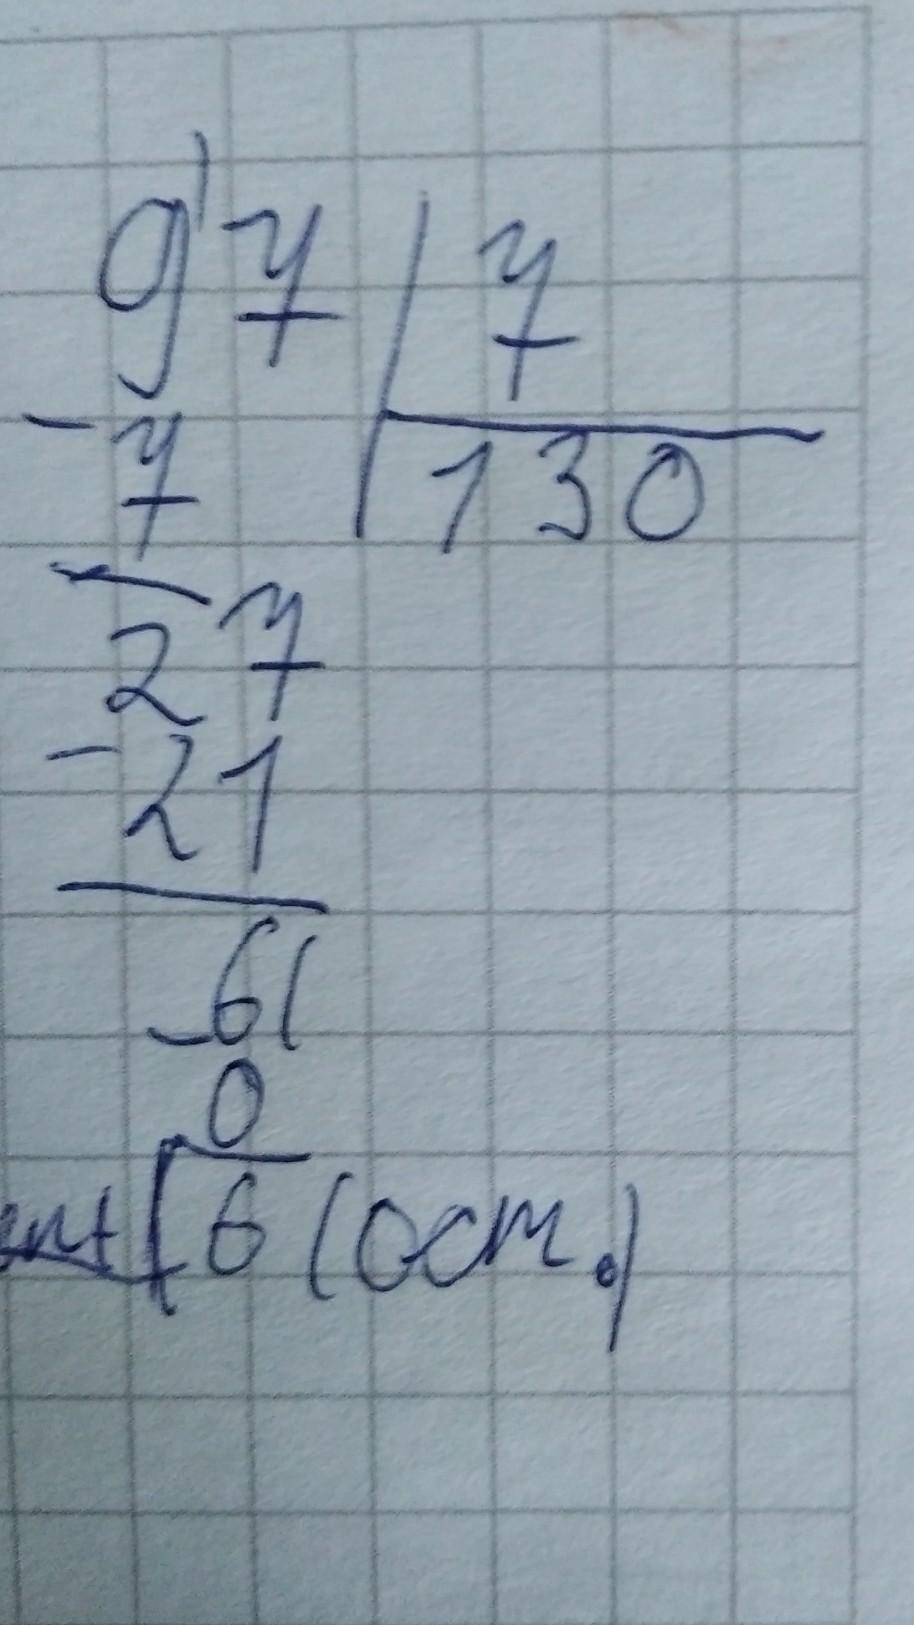 9'7 | 7
- 7 | 130
27
- 21
- 6(
0
6 (ост.)